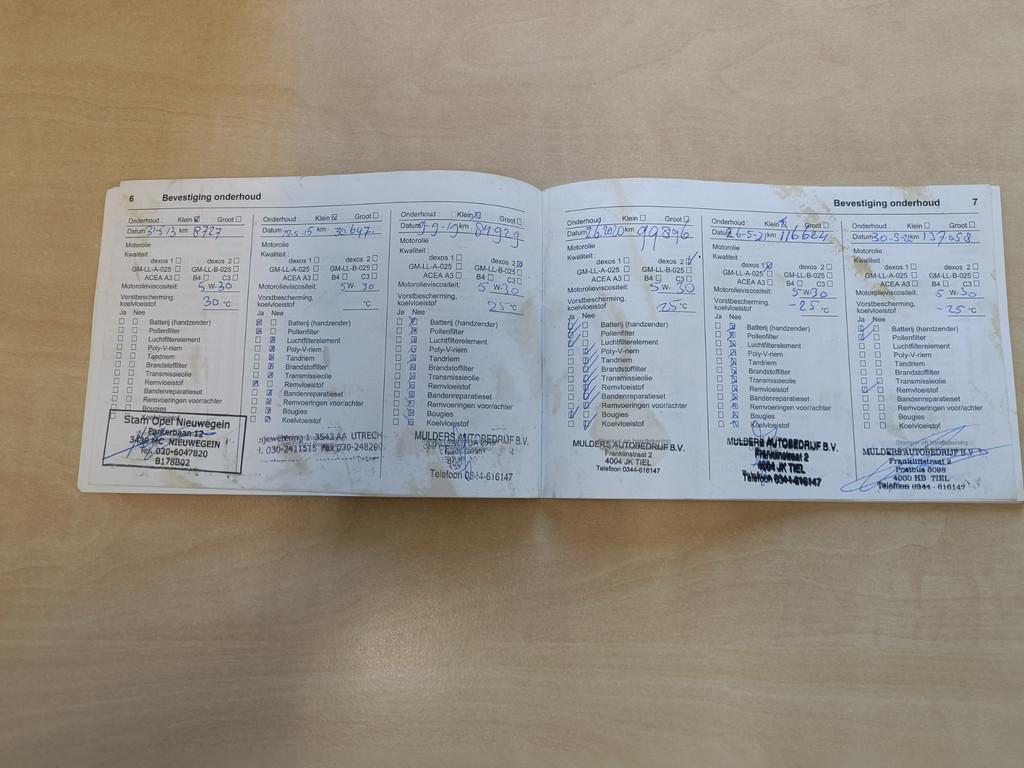 6 Bevestiging onderhoud
Onderhoud : Klein Groot
Datum 31-5-13 km 8727
Motorolie
Kwaliteit :
dexos 1 dexos 2
GM-LL-A-025 GM-LL-B-025
ACEA A3 B4 C3
Motorolieviscositeit: 5 W-30
Vorstbescherming,
koelvloeistof 30 °C
Ja Nee
Batterij (handzender)
Pollenfilter
Luchtfilterelement
Poly-V-riem
Tandriem
Brandstoffilter
Transmissieolie
Remvloeistof
Bandenreparatieset
Remvoeringen voor/achter
Bougies
Stam Opel Nieuwegein
Parkerbaan 12
3439 MC NIEUWEGEIN
Tel. 030-6047820
B178B02
Onderhoud : Klein Groot
Datum km 30647
Motorolie
Kwaliteit :
dexos 1 dexos 2
GM-LL-A-025 GM-LL-B-025
ACEA A3 B4 C3
Motorolieviscositeit: 5W- 30
Vorstbescherming,
koelvloeistof °C
Ja Nee
Batterij (handzender)
Pollenfilter
Luchtfilterelement
Poly-V-riem
Tandriem
Brandstoffilter
Transmissieolie
Remvloeistof
Bandenreparatieset
Remvoeringen voor/achter
Bougies
Koelvloeistof
1 3543 AA UTRECH
030-2411515 Fax 030-248260
Onderhoud : Klein Groot
Datum km 84929
Motorolie
Kwaliteit :
dexos 1 dexos 2
GM-LL-A-025 GM-LL-B-025
ACEA A3 B4 C3
Motorolieviscositeit: 5 W-30
Vorstbescherming,
koelvloeistof -25 °C
Ja Nee
Batterij (handzender)
Pollenfilter
Luchtfilterelement
Poly-V-riem
Tandriem
Brandstoffilter
Transmissieolie
Remvloeistof
Bandenreparatieset
Remvoeringen voor/achter
Bougies
Koelvloeistof
MULDERS AUTOBEDRIJF B.V.
Telefoon 0344-616147
Bevestiging onderhoud 7
Onderhoud : Klein Groot
Datum km 99896
Motorolie
Kwaliteit :
dexos 1 dexos 2
GM-LL-A-025 GM-LL-B-025
ACEA A3 B4 C3
Motorolieviscositeit: 5 W-30
Vorstbescherming,
koelvloeistof -25 °C
Ja Nee
Batterij (handzender)
Pollenfilter
Luchtfilterelement
Poly-V-riem
Tandriem
Brandstoffilter
Transmissieolie
Remvloeistof
Bandenreparatieset
Remvoeringen voor/achter
Bougies
Koelvloeistof
MULDERS AUTOBEDRIJF B.V.
Franklinstraat 2
4004 JK TIEL
Telefoon 0344-616147
Onderhoud : Klein Groot
Datum 26-5-21 km 116624
Motorolie
Kwaliteit :
dexos 1 dexos 2
GM-LL-A-025 GM-LL-B-025
ACEA A3 B4 C3
Motorolieviscositeit: 5 W-30
Vorstbescherming,
koelvloeistof -25 °C
Ja Nee
Batterij (handzender)
Pollenfilter
Luchtfilterelement
Poly-V-riem
Tandriem
Brandstoffilter
Transmissieolie
Remvloeistof
Bandenreparatieset
Remvoeringen voor/achter
Bougies
Koelvloeistof
MULDERS AUTOBEDRIJF B.V.
Franklinstraat 2
4004 JK TIEL
Telefoon 0344-616147
Onderhoud : Klein Groot
Datum km 137.058
Motorolie
Kwaliteit :
dexos 1 dexos 2
GM-LL-A-025 GM-LL-B-025
ACEA A3 B4 C3
Motorolieviscositeit: 5 W-30
Vorstbescherming,
koelvloeistof -25 °C
Ja Nee
Batterij (handzender)
Pollenfilter
Luchtfilterelement
Poly-V-riem
Tandriem
Brandstoffilter
Transmissieolie
Remvloeistof
Bandenreparatieset
Remvoeringen voor/achter
Bougies
Koelvloeistof
MULDERS AUTOBEDRIJF B.V.
Franklinstraat 2
Postbus 6098
4000 HB TIEL
Telefoon 0344 - 616147